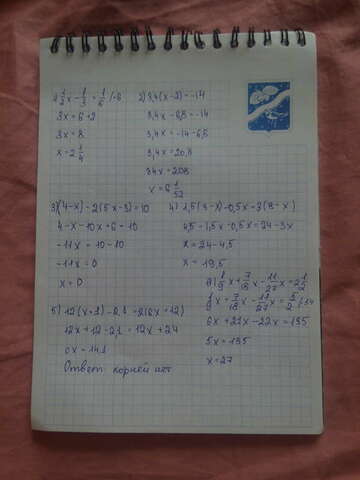 1) 1/2 x - 1/3 = 1/6 /·6
3x = 6+2
3x = 8
x = 2 1/4
2) 3,4(x-2) = -14
3,4x - 6,5 = -14
3,4x = -14 - 6,5
3,4x = 20,8
34x = 208
x = 6 1/52
3) (4-x) - 2(5x-3) = 10
4 - x - 10x + 6 = 10
-11x = 10 - 10
-11x = 0
x = 0
4) 1,5(3-x) - 0,5x = 3(8-x)
4,5 - 1,5x - 0,5x = 24 - 3x
x = 24 - 4,5
x = 19,5
5) 12(x+1) - 2,1 = 2(6x+12)
12x + 12 - 2,1 = 12x + 24
0x = 14,1
Ответ: корней нет
x + 7/18 x - 11/27 x = 2 1/2
6x + 21x - 22x = 135
5x = 135
x = 27